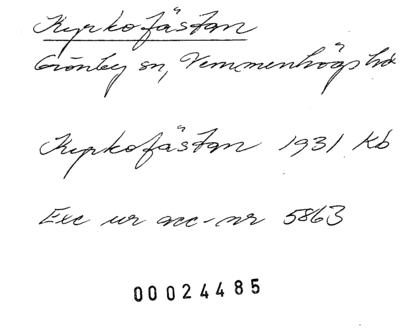 Kyrkofästan
Grönby sn, Vemmenhögs hd
Kyrkofästan 1931 Kb
Exc ur acc-nr 5863
00024485